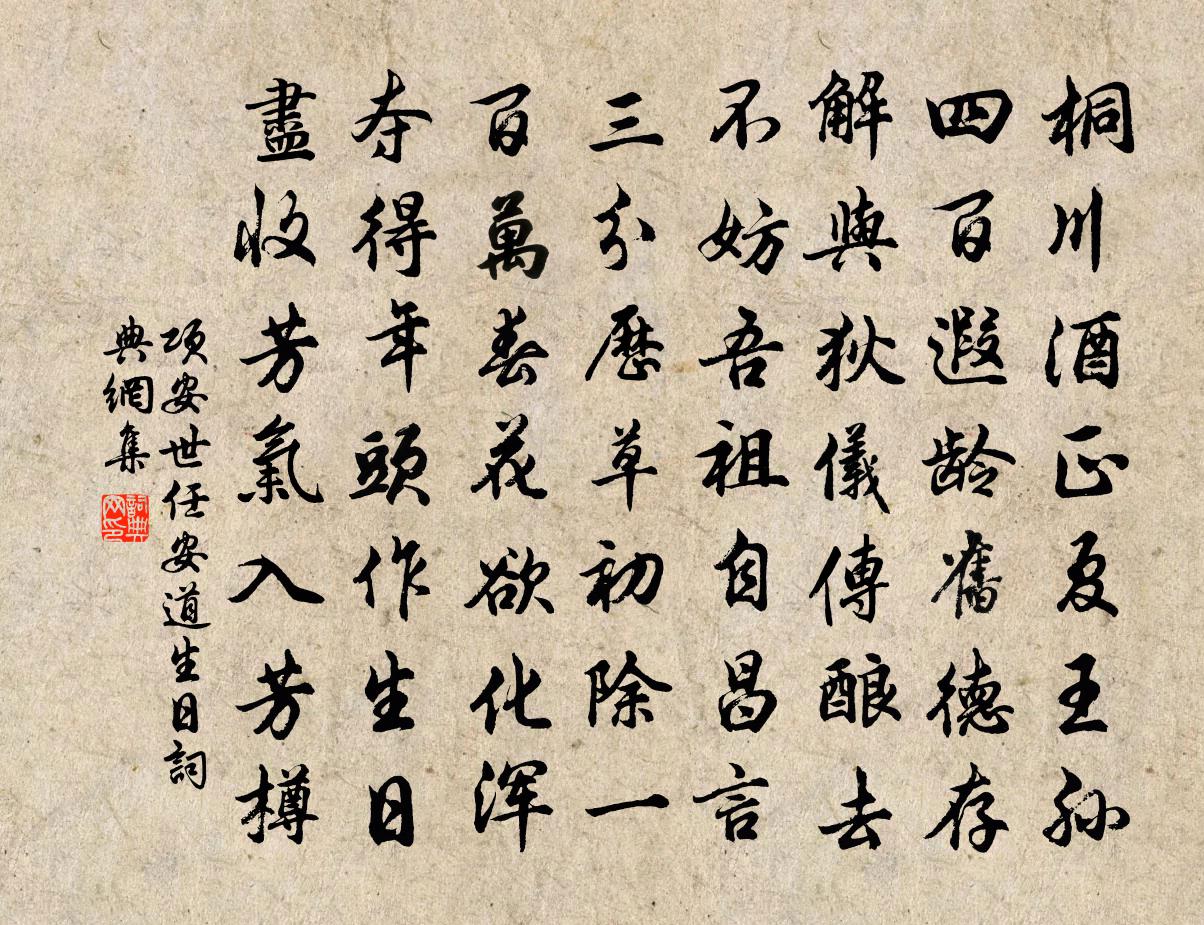 桐川酒正夏王孙
四百遐龄舊德存
解與狄儀傳酿去
不妨吾祖自昌言
三分曆草初除一
百萬春花欲化浑
夺得年頭作生日
盡收芳氣入芳樽
项安世任安道生日詞
典網集
詞典